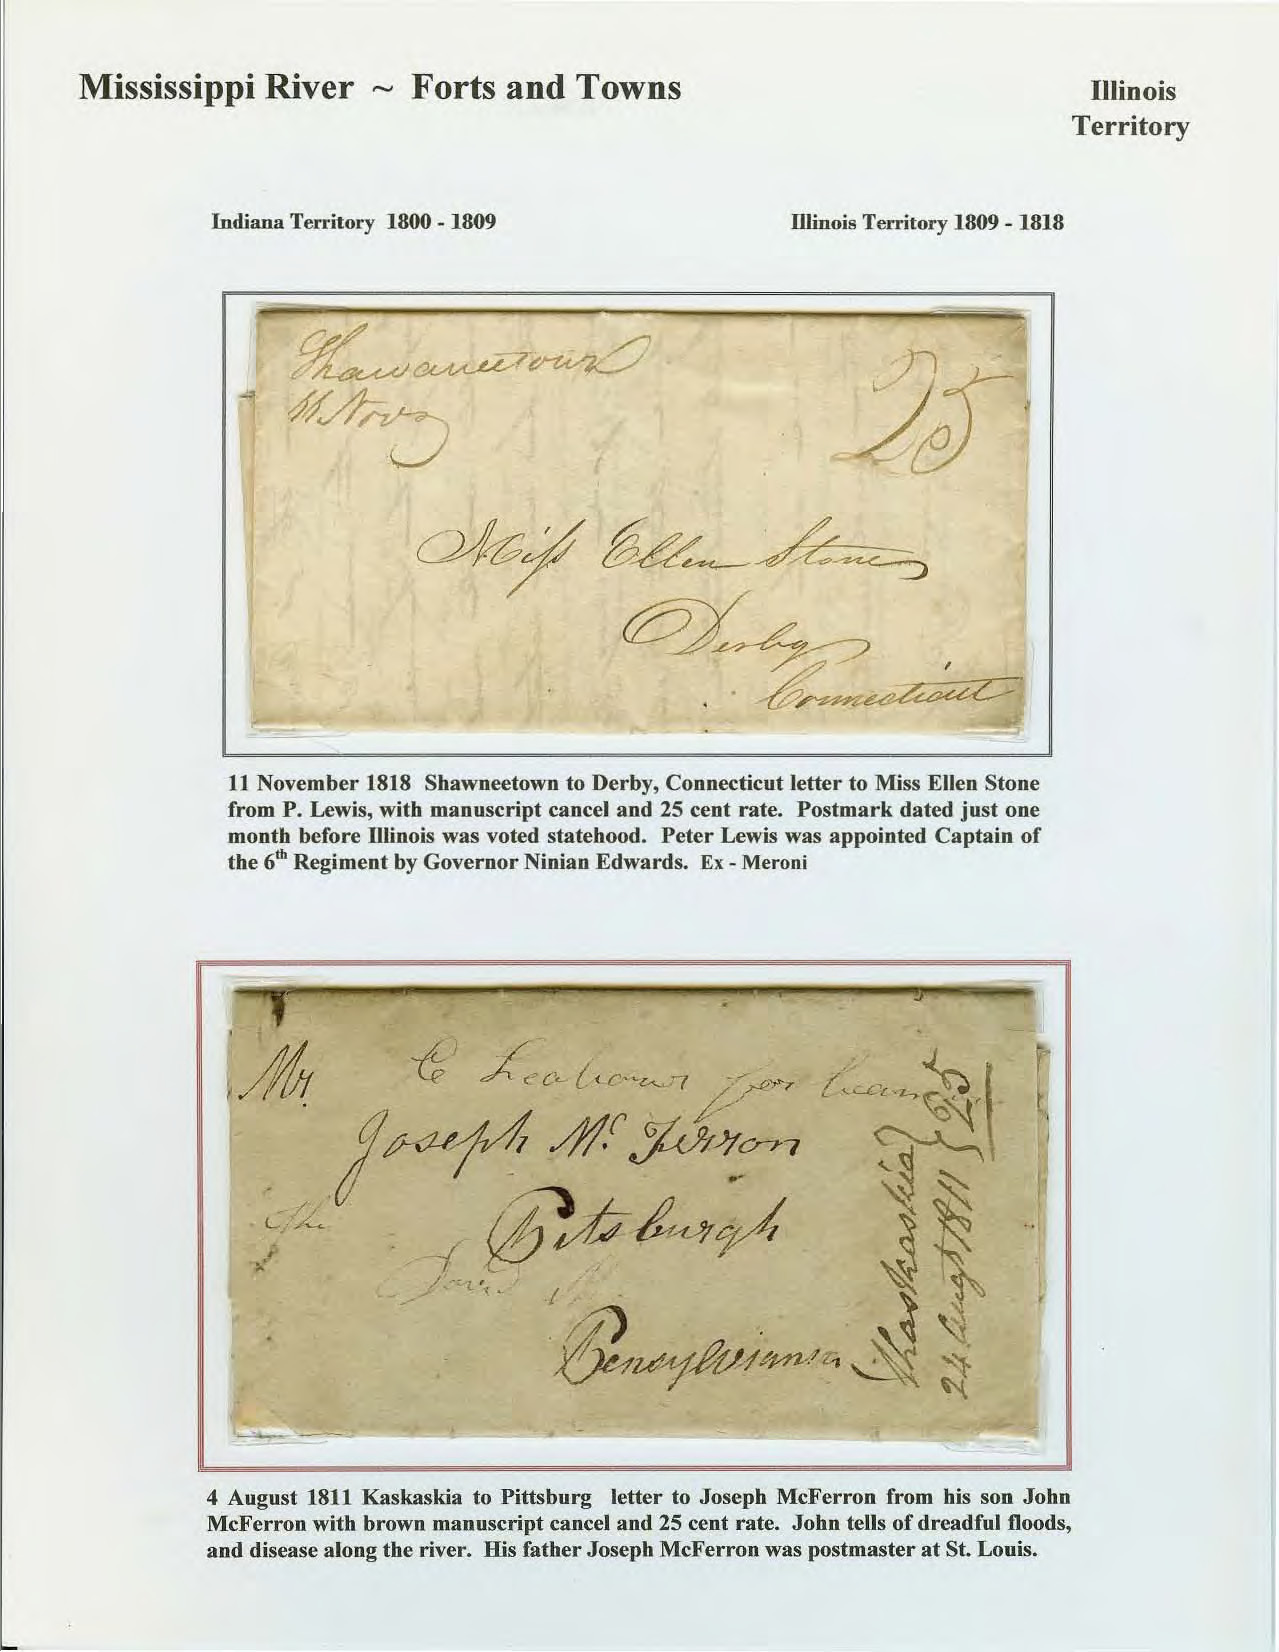 Mississippi River ~ Forts and Towns
Illinois
Territory
Indiana Territory 1800 - 1809
Illinois Territory 1809 - 1818
Shawaneetown
11 Novr
25
Miss Ellen Stone
Derby
Connecticut
11 November 1818 Shawneetown to Derby, Connecticut letter to Miss Ellen Stone
from P. Lewis, with manuscript cancel and 25 cent rate. Postmark dated just one
month before Illinois was voted statehood. Peter Lewis was appointed Captain of
the 6th Regiment by Governor Ninian Edwards. Ex - Meroni
Mr.
for
Joseph Mc Ferron
Pitsburgh
The
David
Pensylvianna
Kaskaskia } 25
24 Augt 1811
4 August 1811 Kaskaskia to Pittsburg letter to Joseph McFerron from his son John
McFerron with brown manuscript cancel and 25 cent rate. John tells of dreadful floods,
and disease along the river. His father Joseph McFerron was postmaster at St. Louis.